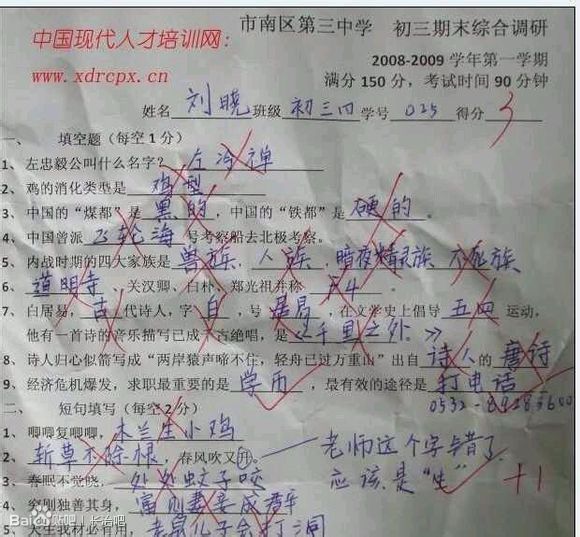 中国现代人才培训网：
www.xdrcpx.cn
市南区第三中学 初三期末综合调研
2008-2009 学年第一学期
满分 150 分，考试时间 90 分钟
姓名 刘晓 班级 初三四 学号 025 得分 3
一、 填空题（每空 1 分）
1、左忠毅公叫什么名字？ 左冷禅
2、鸡的消化类型是 鸡型
3、中国的“煤都”是 黑的 ，中国的“铁都”是 硬的 。
4、中国曾派 飞轮海 号考察船去北极考察。
5、内战时期的四大家族是 兽族，人族、暗夜精灵族 不死族
6、 道明寺 、关汉卿、白朴、郑光祖并称 F4 。
7、白居易， 古 代诗人，字 白 ，号 居易 ，在文学史上倡导 五四 运动，
他有一首诗的音乐描写已成千古绝唱，是 《千里之外。》
8、诗人归心似箭写成“两岸猿声啼不住，轻舟已过万重山”出自 诗人 的 唐诗
9、经济危机爆发，求职最重要的是 学历 ，最有效的途径是 打电话
二、 短句填写（每空 2 分）
1、唧唧复唧唧， 木兰生小鸡
2、 斩草不除根 ，春风吹又开。 老师这个字错了
3、春眠不觉晓， 处处蚊子咬 应该是“生” +1
4、穷则独善其身， 富则妻妾成群
5、天生我材必有用， 老鼠儿子会打洞
Baidu贴吧 | 长治吧